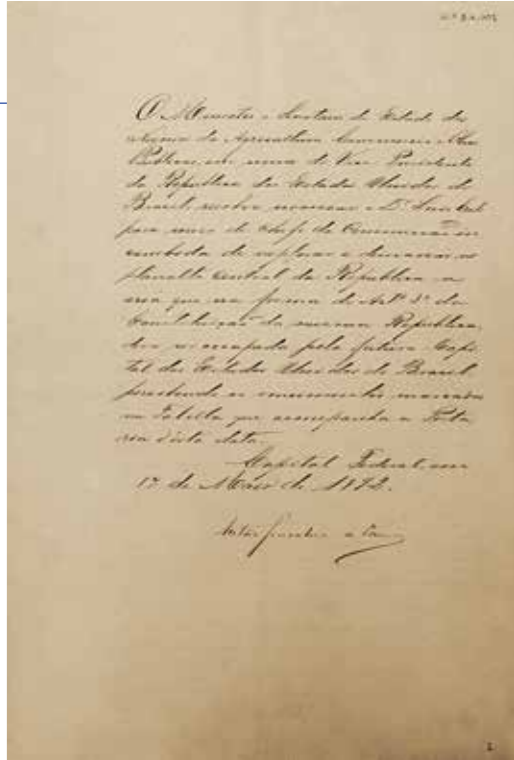 O Ministro e Secretario de Estado dos
Negocios da Agricultura, Commercio e Obras
Publicas, em nome do Vice Presidente
da Republica dos Estados Unidos do
Brazil, resolve nomear o Dr. Luiz Cruls
para o de chefe da Commissão in
cumbida de explorar e demarcar no
planalto central da Republica a
area que na forma do Artº 3º da
Constituição da mesma Republica,
deve ser occupada pela futura Capi
tal dos Estados Unidos do Brazil
percebendo os vencimentos marcados
na Tabella que acompanha a Porta
ria d'esta data.
Capital Federal, em
17 de Maio de 1892.